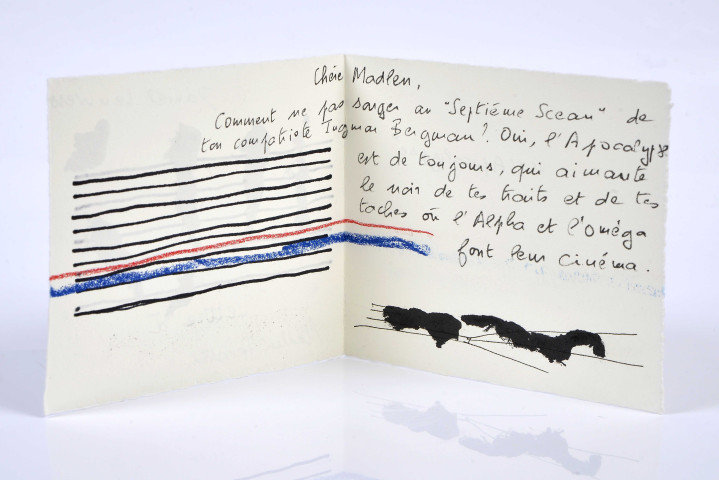 Chère Madlen,
Comment ne pas songer au "Septième Sceau" de
ton compatriote Ingmar Bergman? Oui, l'Apocalypse
est de toujours, qui aimante
le noir de tes traits et de tes
taches où l'Alpha et l'Oméga
font leur cinéma.